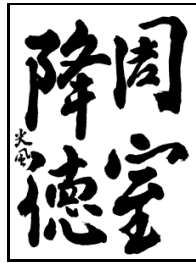 周室
降德
炎風